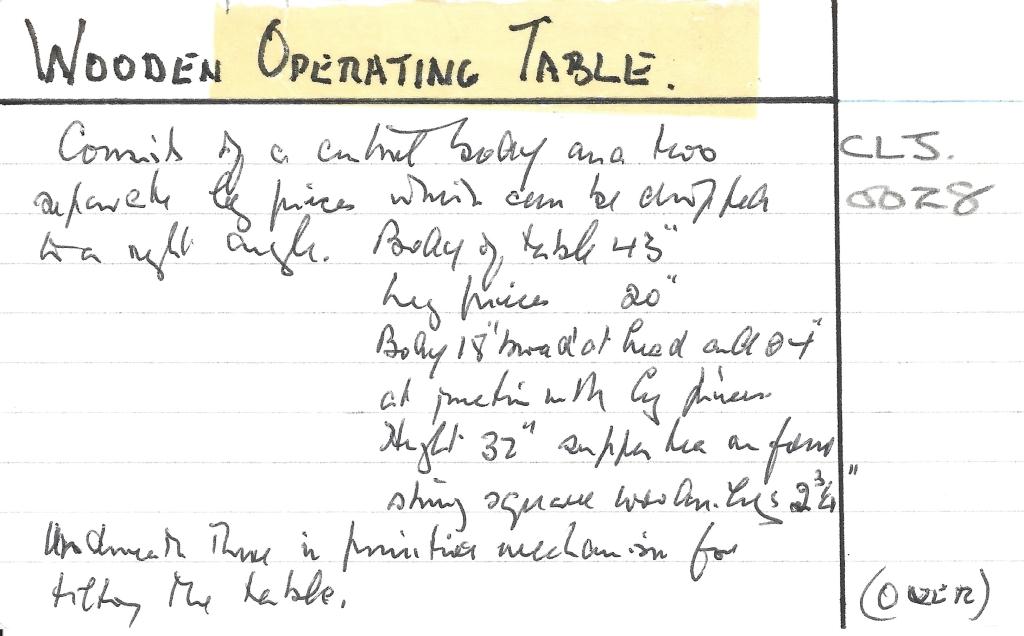 WOODEN OPERATING TABLE.
Consists of a central body and two CLJ.
separate leg pieces which can be dropped 0028
to a right angle. Body of table 43"
Leg pieces 20"
Body 18" broad at head and 24"
at junction with leg pieces
Height 32" supported on four
strong square wooden legs 2 3/4"
Underneath there is primitive mechanism for
tilting the table.
(OVER)